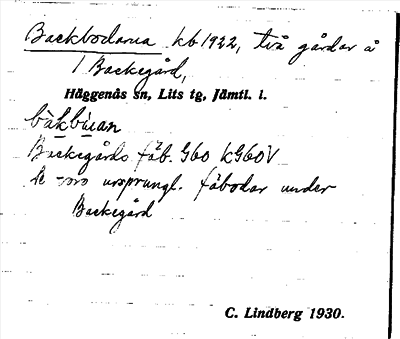 Backbodarna kb 1922, två gårdar å
1 Backegård,
Häggenås sn, Lits tg, Jämtl. l.
bàkbùan
Backegårds fäb. G60 kG60V
De voro ursprungl. fäbodar under
Backegård
C. Lindberg 1930.